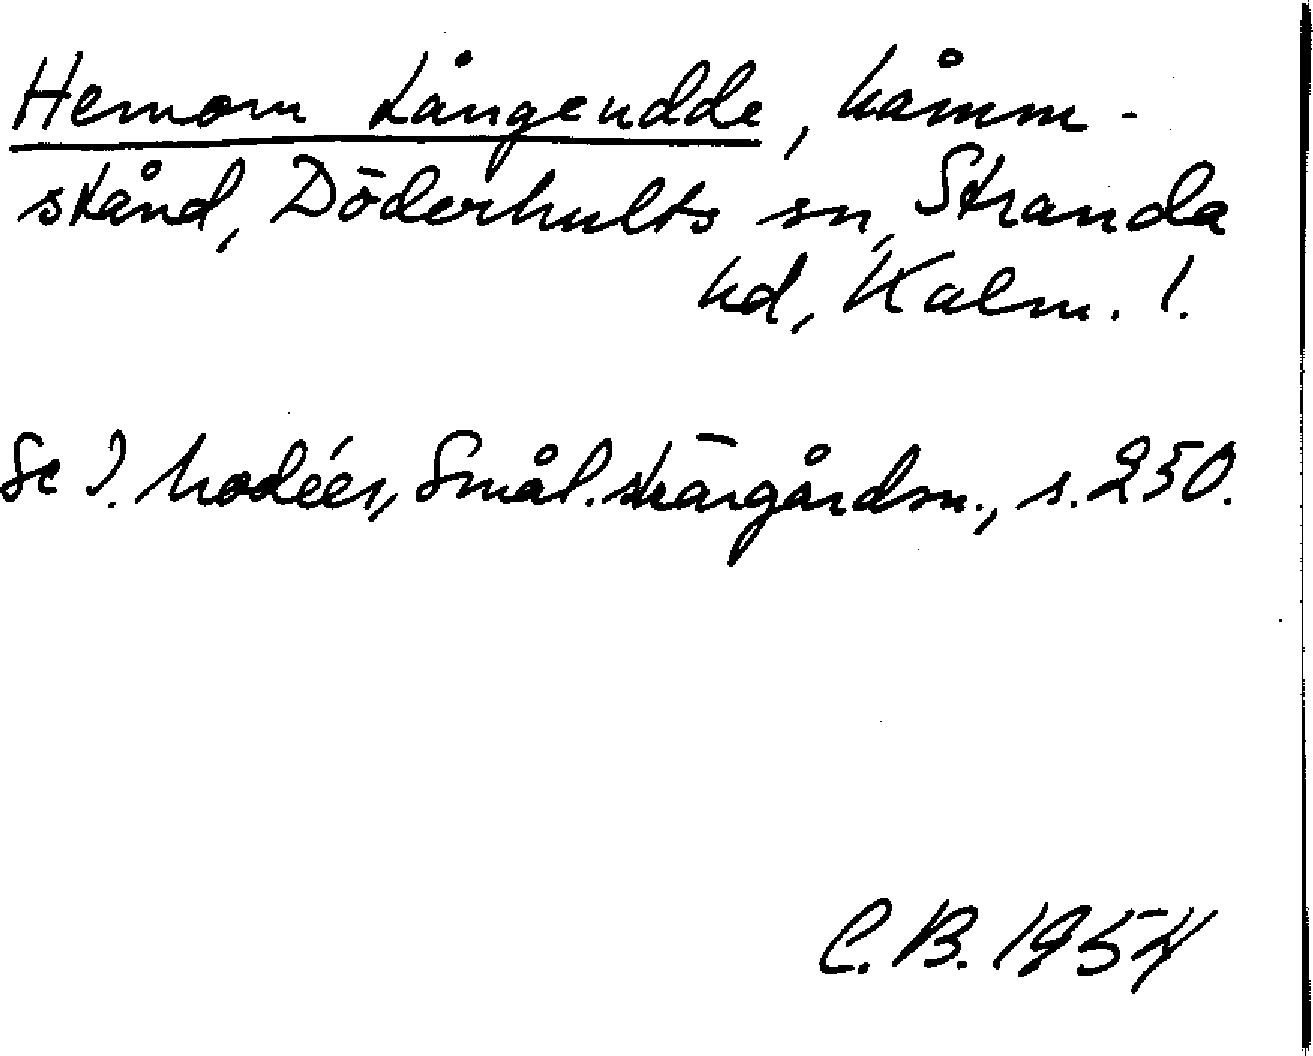 Hemom Långeudde, håmm-
stånd, Döderhults sn, Stranda
hd, Kalm. l.
Se I. Modéer, Smål. skärgårdsn., s. 250.
C. B. 1954